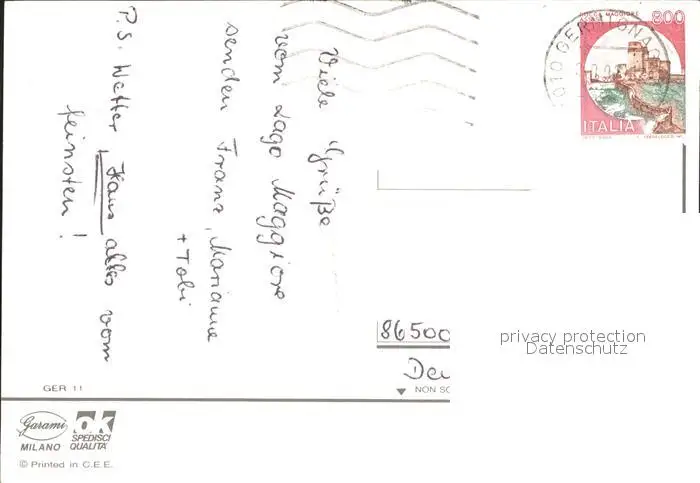 Viele Grüße
vom Lago Maggiore
senden Franz, Marianne
+ Tobi
P.S. Wetter, Haus alles vom
feinsten!
800
ITALIA
86500
privacy protection
Datenschutz
GER 11
NON SC
Garami
MILANO
OK
SPEDISCI
QUALITA'
© Printed in C.E.E.